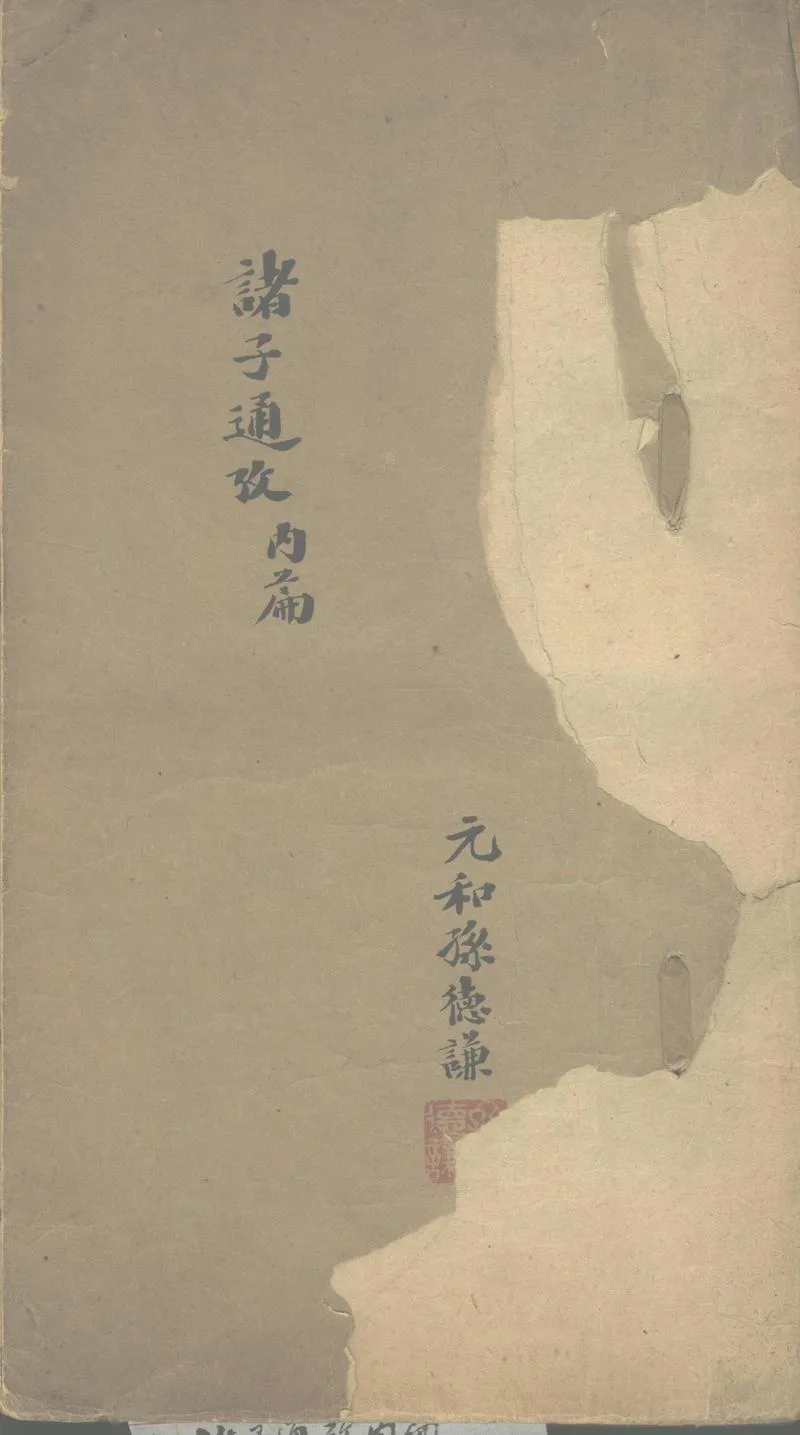 諸子通攷 内篇
元和孫德謙
德謙